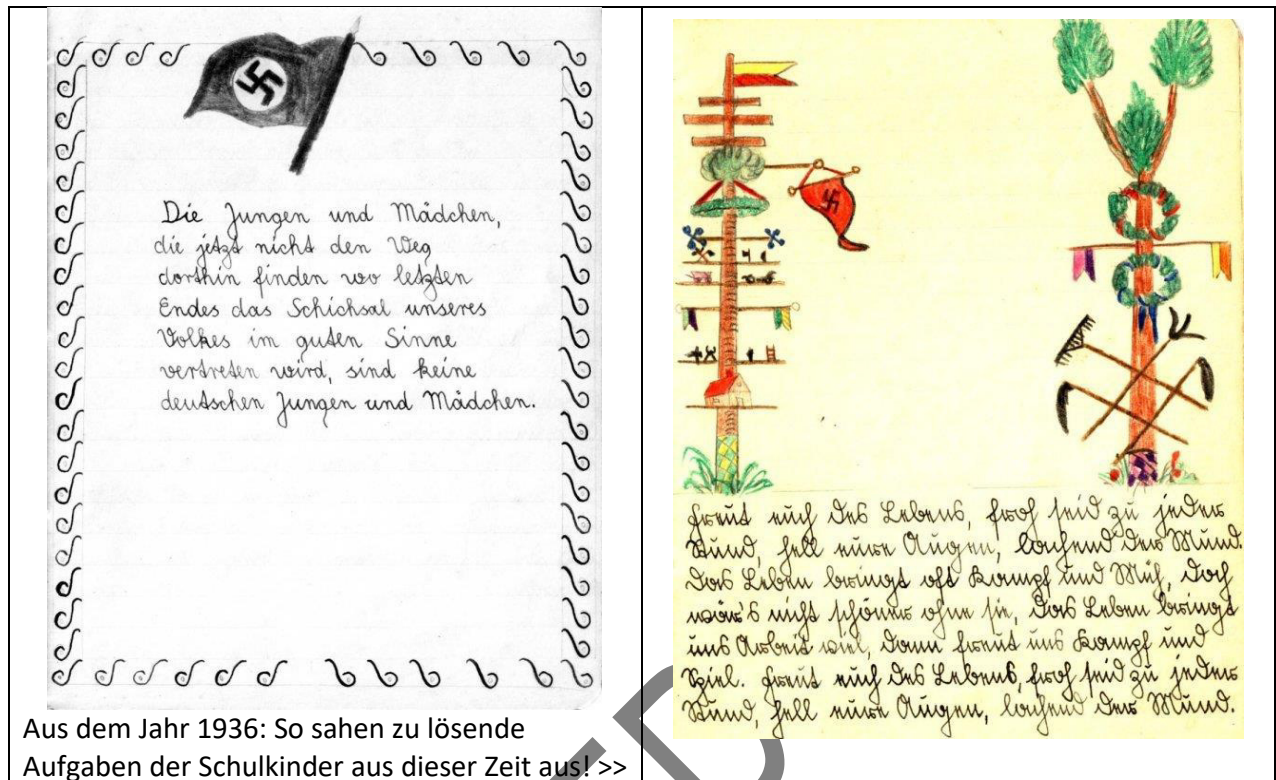 Die Jungen und Mädchen,
die jetzt nicht den Weg
dorthin finden wo letzten
Endes das Schicksal unseres
Volkes im guten Sinne
vertreten wird, sind keine
deutschen Jungen und Mädchen.
Aus dem Jahr 1936: So sahen zu lösende
Aufgaben der Schulkinder aus dieser Zeit aus! >>
Freut euch des Lebens, froh seid zu jeder
Stund, hell eure Augen, lachend der Mund.
Das Leben bringt oft Kampf und Müh, doch
wär's nicht schöner ohne sie, das Leben bringt
uns Arbeit viel, dann freut uns Kampf und
Spiel. Freut euch des Lebens, froh seid zu jeder
Stund, hell eure Augen, lachend der Mund.